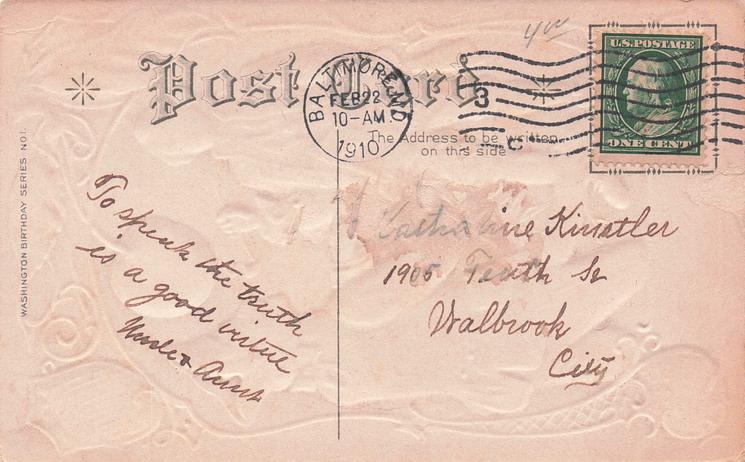 Post Card
BALTIMORE, MD
FEB 22
10-AM
1910
3
U.S. POSTAGE
ONE CENT
The Address to be written
on this side
WASHINGTON BIRTHDAY SERIES NO1.
To speak the truth
is a good virtue
Uncle & Aunt
Katharine Kinstler
1905 Tenth St
Walbrook
City